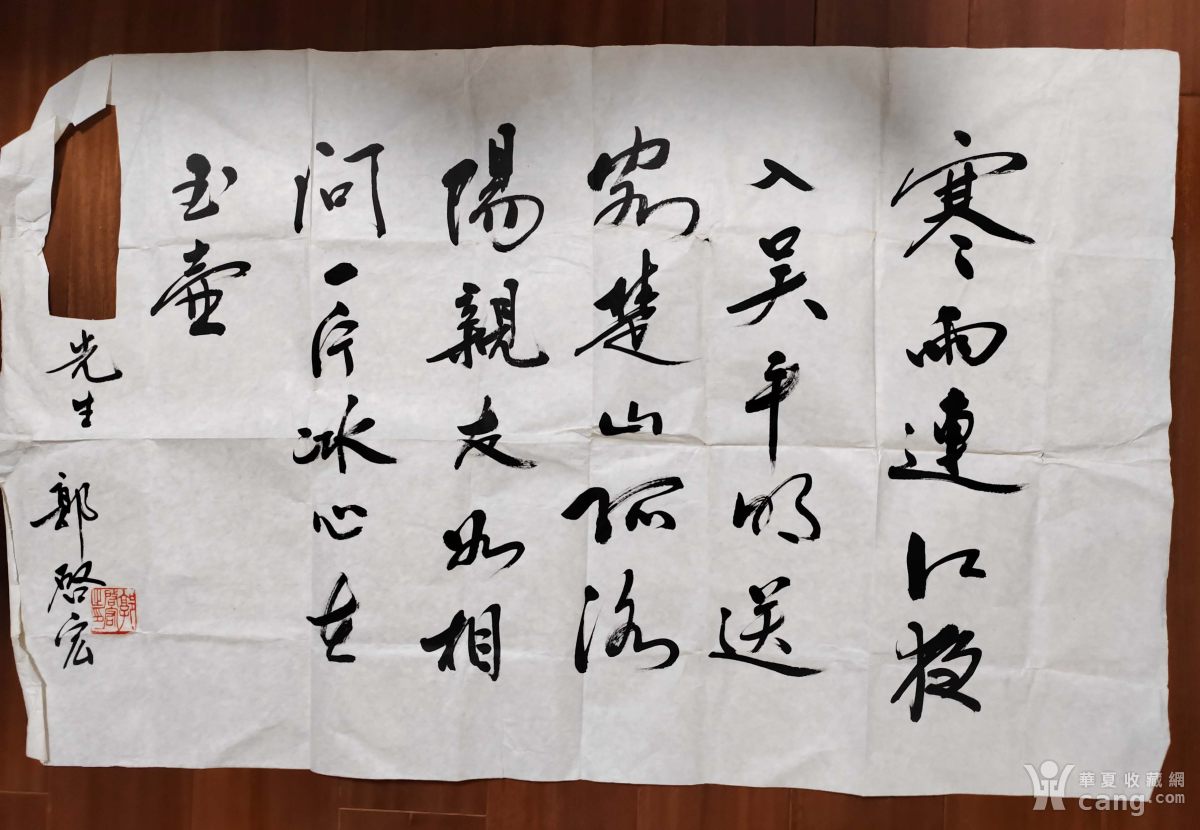 寒雨連江夜
入吴平明送
客楚山孤洛
陽親友如相
問一片冰心在
玉壺
先生 郭啓宏
華夏收藏網
cang.com